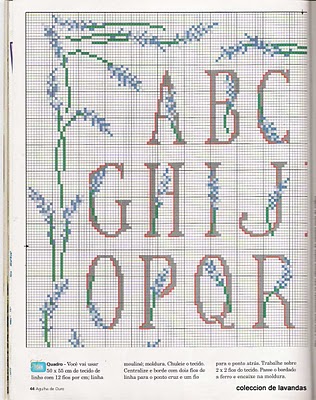 A B C
G H I J
O P Q R
Quadro - Você vai usar
50 x 55 cm de tecido de
linho com 12 fios por cm; linha
mouliné; moldura. Chuleie o tecido.
Centralize e borde com dois fios de
linha para o ponto cruz e um fio
para o ponto atrás. Trabalhe sobre
2 x 2 fios do tecido. Passe o bordado
a ferro e encaixe na moldura.
44 Agulha de Ouro
coleccion de lavandas